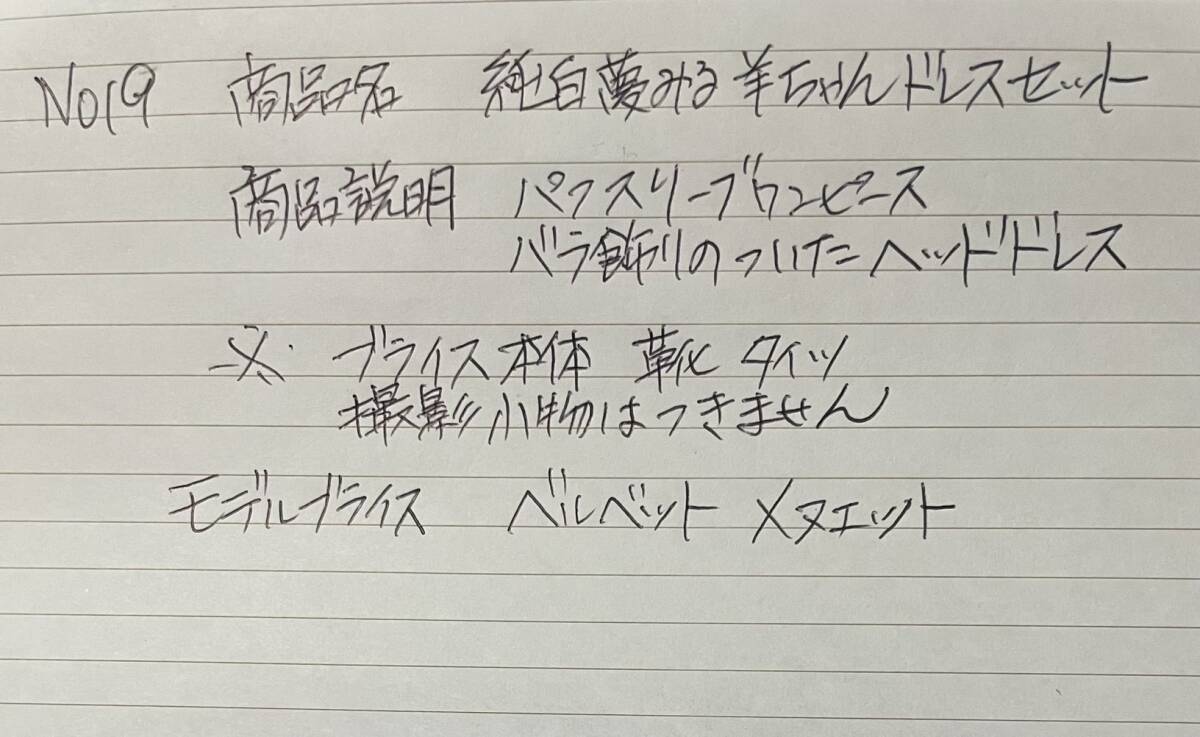 No19 商品名 純白夢みる羊ちゃんドレスセット
商品説明 パフスリーブワンピース
バラ飾りのついたヘッドドレス
※ ブライス本体 靴 タイツ
撮影小物はつきません
モデルブライス ベルベット メヌエット